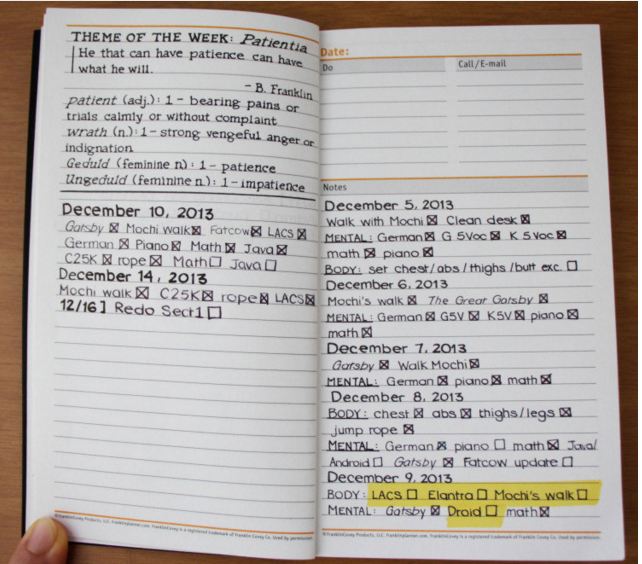 THEME OF THE WEEK: Patientia
He that can have patience can have
what he will.
- B. Franklin
patient (adj.): 1 - bearing pains or
trials calmly or without complaint
wrath (n.): 1 - strong vengeful anger or
indignation
Geduld (feminine n): 1 - patience
Ungeduld (feminine n.): 1 - impatience
December 10, 2013
Gatsby ☒ Mochi walk ☒ Fatcow ☒ LACS ☒
German ☒ Piano ☒ Math ☒ Java ☒
C25K ☒ rope ☒ Math ☐ Java ☐
December 14, 2013
Mochi walk ☒ C25K ☒ rope ☒ LACS ☒
12/16] Redo Sect 1 ☐
©FranklinCovey Products, LLC. FranklinPlanner.com. FranklinCovey is a registered trademark of Franklin Covey Co. Used by permission.
Date:
Do Call/E-mail
Notes
December 5, 2013
Walk with Mochi ☒ Clean desk ☒
MENTAL: German ☒ G 5Voc ☒ K 5Voc ☒
math ☒ piano ☒
BODY: set chest/abs/thighs/butt exc. ☐
December 6, 2013
Mochi's walk ☒ The Great Gatsby ☒
MENTAL: German ☒ G5V ☒ K5V ☒ piano ☒
math ☒
December 7, 2013
Gatsby ☒ Walk Mochi ☒
MENTAL: German ☒ piano ☒ math ☒
December 8, 2013
BODY: chest ☒ abs ☒ thighs/legs ☒
jump rope ☒
MENTAL: German ☒ piano ☐ math ☒ Java/
Android ☐ Gatsby ☒ Fatcow update ☐
December 9, 2013
BODY: LACS ☐ Elantra ☐ Mochi's walk ☐
MENTAL: Gatsby ☒ Droid ☐ math ☒
©FranklinCovey Products, LLC. FranklinPlanner.com. FranklinCovey is a registered trademark of Franklin Covey Co. Used by permission.